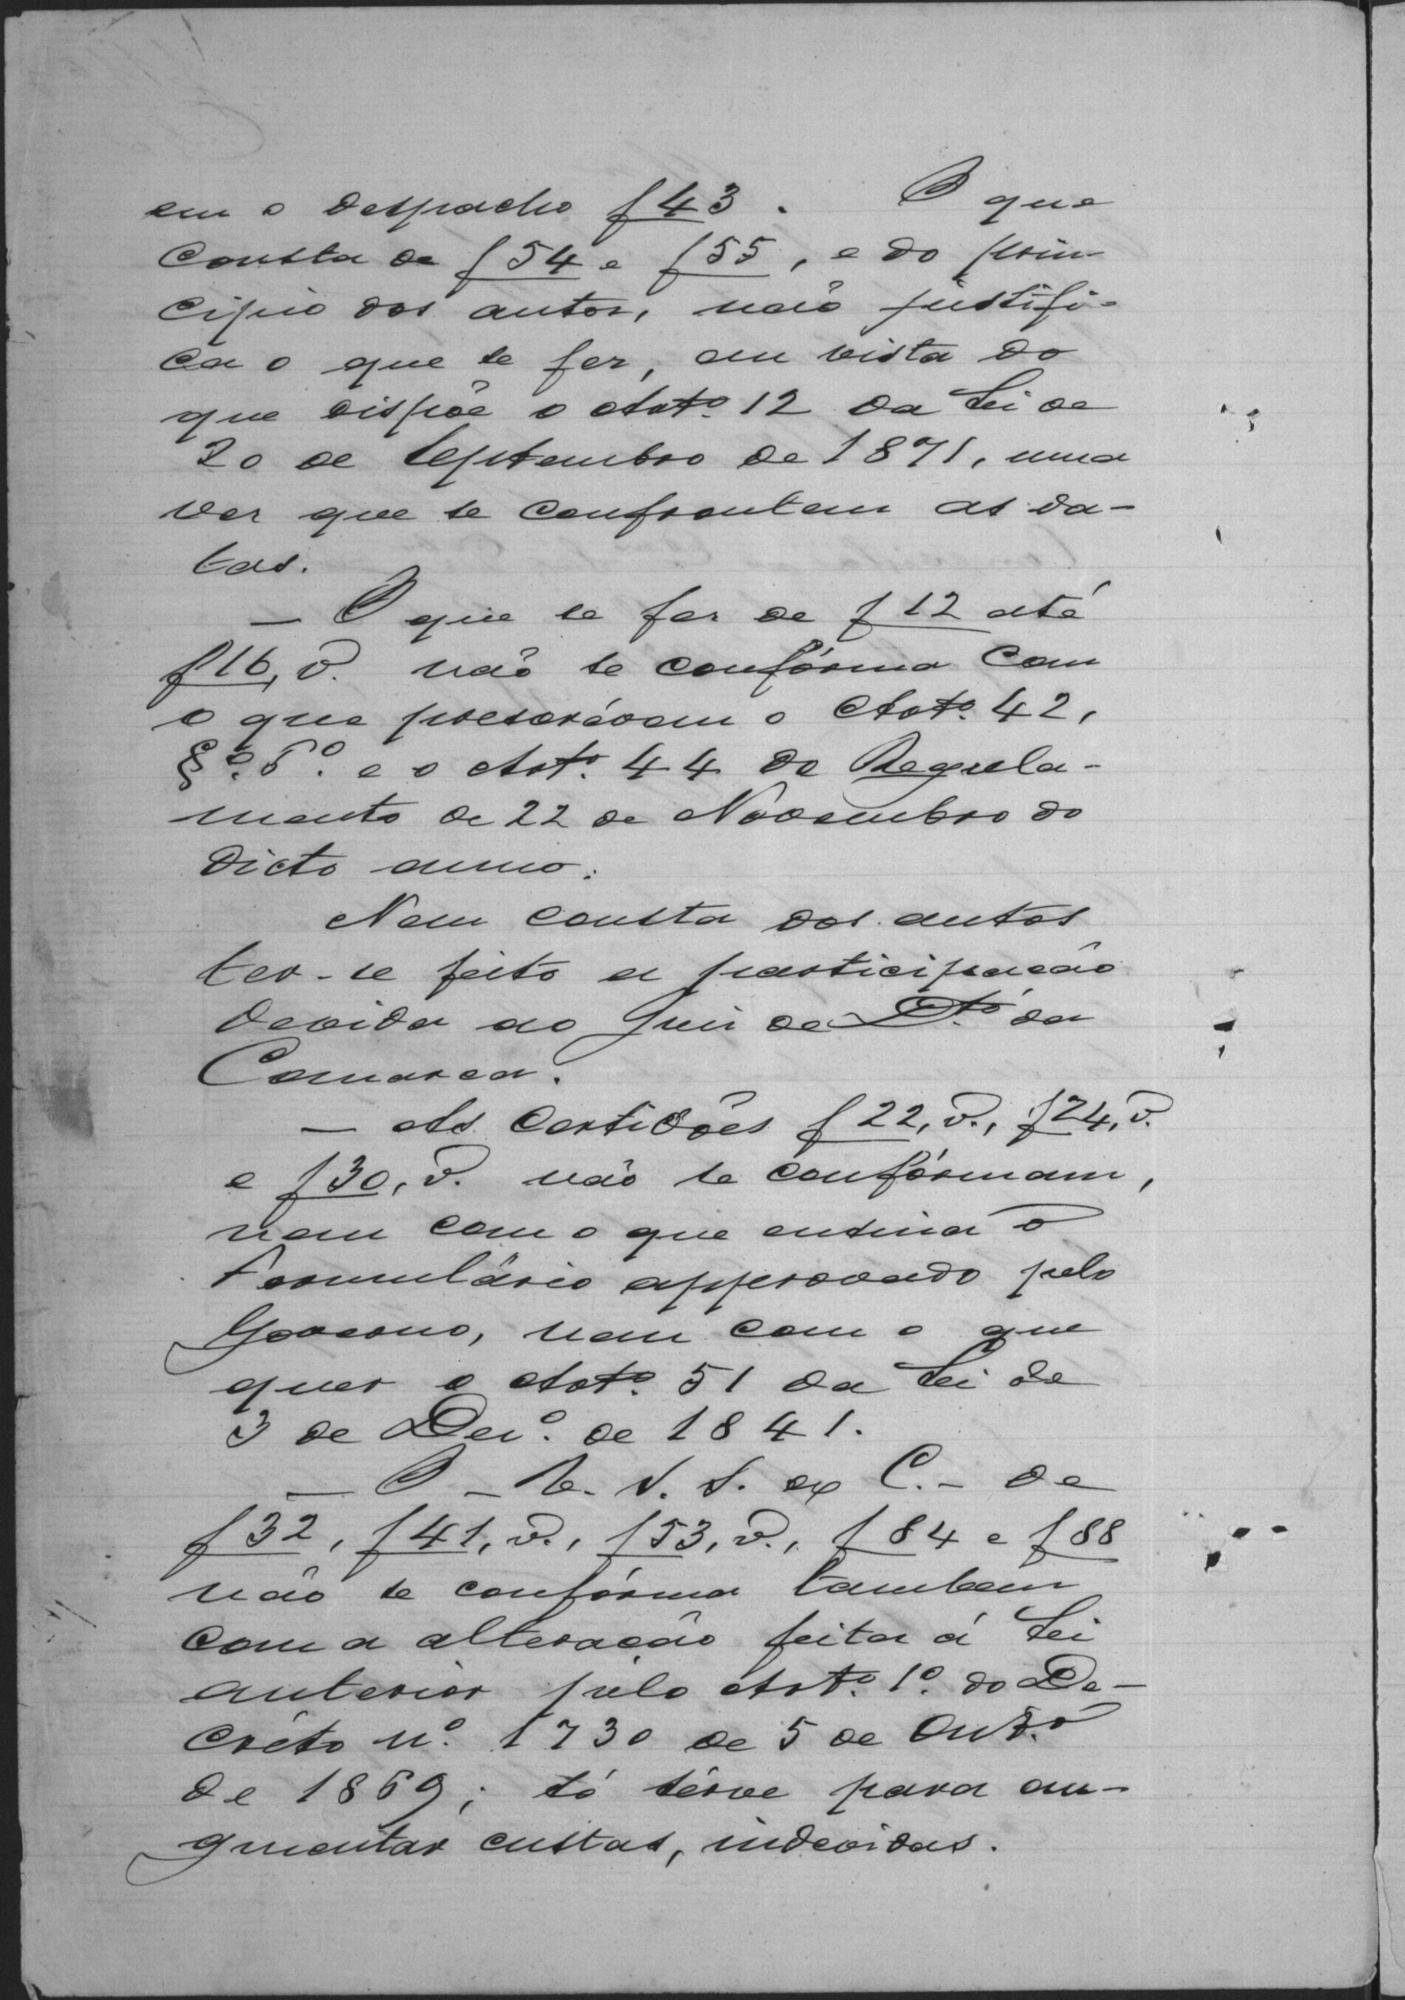 em o despacho f 43. O que
consta de f 54 e f 55, e do prin-
cipio dos autos, não justifi-
ca o que se fez, em vista do
que dispõe o Artº. 12 da Lei de
20 de Septembro de 1871, uma
vez que se confrontem as da-
tas.
— O que se fez de f 12 até
f 16, v. não se confórma com
o que prescrévem o Artº. 42,
§º. 6º. e o Artº. 44 do Regula-
mento de 22 de Novembro do
dicto anno.
Nem consta dos autos
ter-se feito a participação
devida ao Juiz de Dtº. da
Comarca.
— As certidões f 22, v., f 24, v.
e f 30, v. não se confórmam,
nem com o que ensina o
Formulário approvado pelo
Governo, nem com o que
quer o Artº. 51 da Lei de
3 de Dezº. de 1841.
— O — N. S. S. ex C. — de
f 32, f 41, v., f 53, v., f 84 e f 88
não se confórma tambem
com a alteração feita á Lei
anterior pelo Artº. 1º. do De-
créto nº. 1730 de 5 de Outº.
de 1869; só sérve para au-
gmentar custas, indevidas.